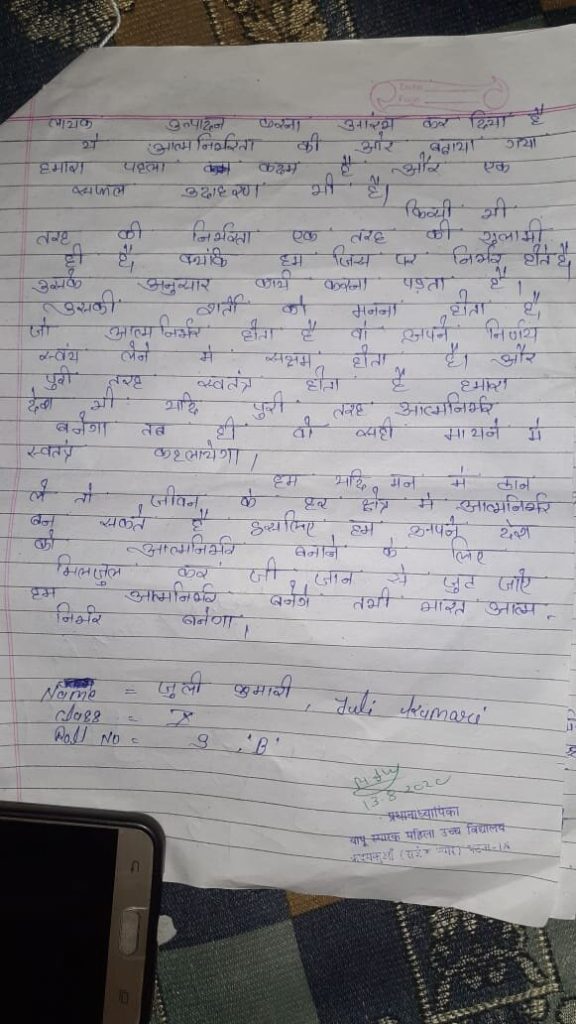 लायक उत्पादन करना आरंभ कर दिया है
ये आत्मनिर्भरता की और बढ़ाया गया
हमारा पहला कदम है और एक
सफल उदाहरण भी है।
किसी भी
तरह की निर्भरता एक तरह की गुलामी
ही है, क्योंकि हम जिस पर निर्भर होते है,
उसके अनुसार कार्य करना पड़ता है।
उसकी शर्तो को मनना होता है,
जो आत्मनिर्भर होता है वो अपने निर्णय
स्वंय लेने मे सक्षम होता है। और
पुरी तरह स्वतंत्र होता है हमारा
देश भी यदि पुरी तरह आत्मनिर्भर
बनेगा तब ही वो सही मायने मे
स्वतंत्र कहलायेगा।
हम यदि मन मे ठान
ले तो जीवन के हर क्षेत्र मे आत्मनिर्भर
बन सकते है इसलिए हम अपने देश
को आत्मनिर्भर बनाने के लिए
मिलजुल कर जी जान से जुट जाए
हम आत्मनिर्भर बनेगे तभी भारत आत्म-
निर्भर बनेगा।
Name = जुली कुमारी, Juli Kumari
Class = X
Roll No = 9 , 'B'
13.8.2020
प्रधानाध्यापिका
बापू स्मारक महिला उच्च विद्यालय